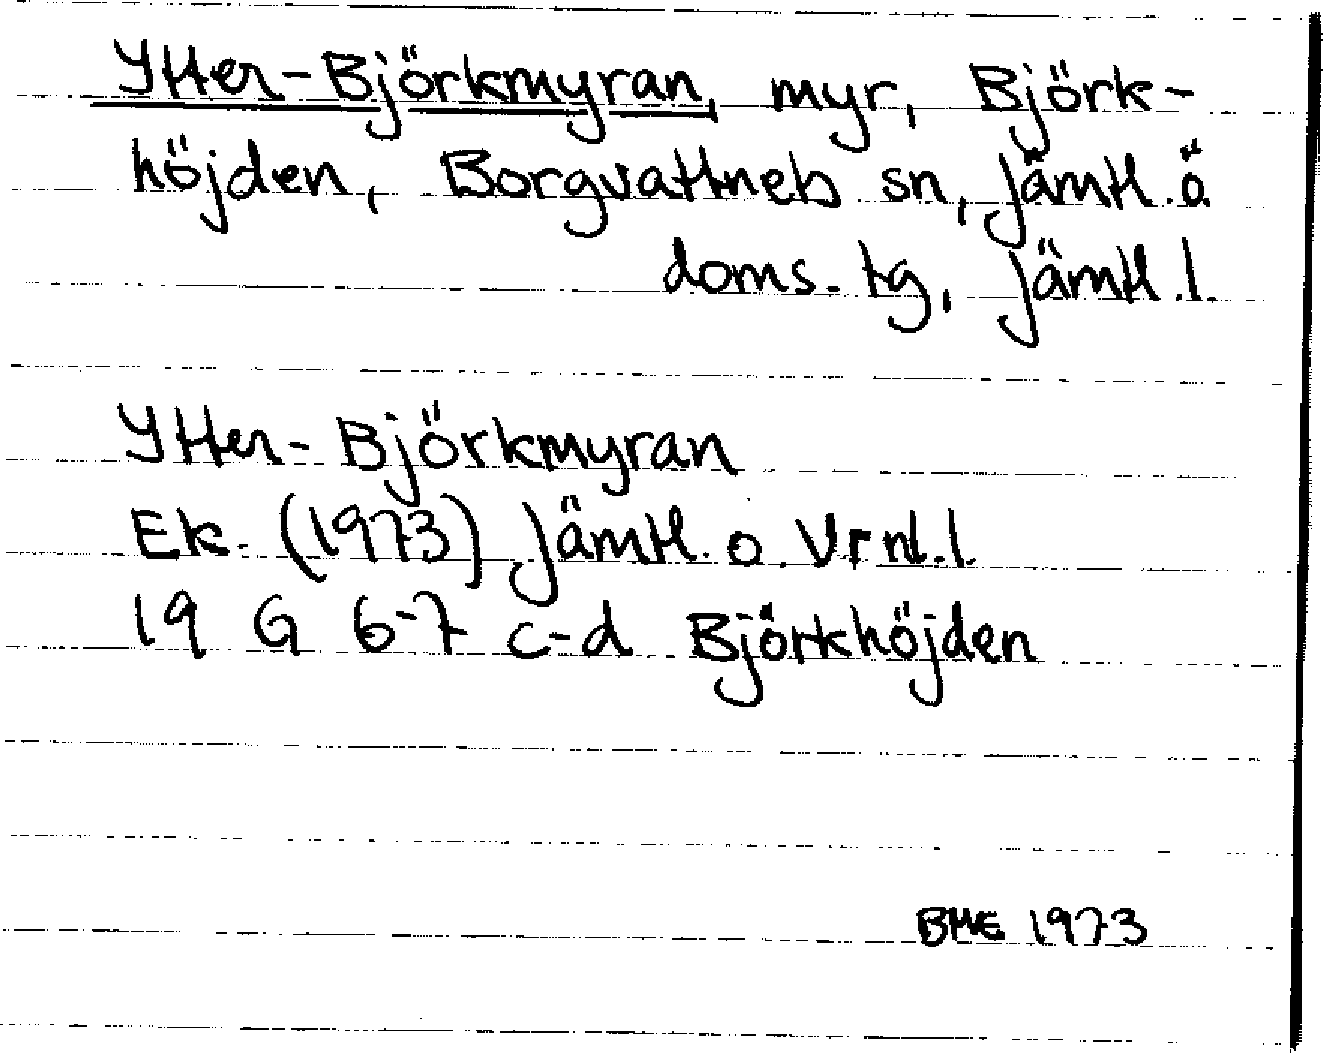 Ytter-Björkmyran, myr, Björk-
höjden, Borgvattnets sn, Jämtl. ö.
doms. tg, Jämtl. l.
Ytter-Björkmyran
Ek. (1973) Jämtl. o. Vrnl. l.
19 G 6-7 c-d Björkhöjden
BME 1973